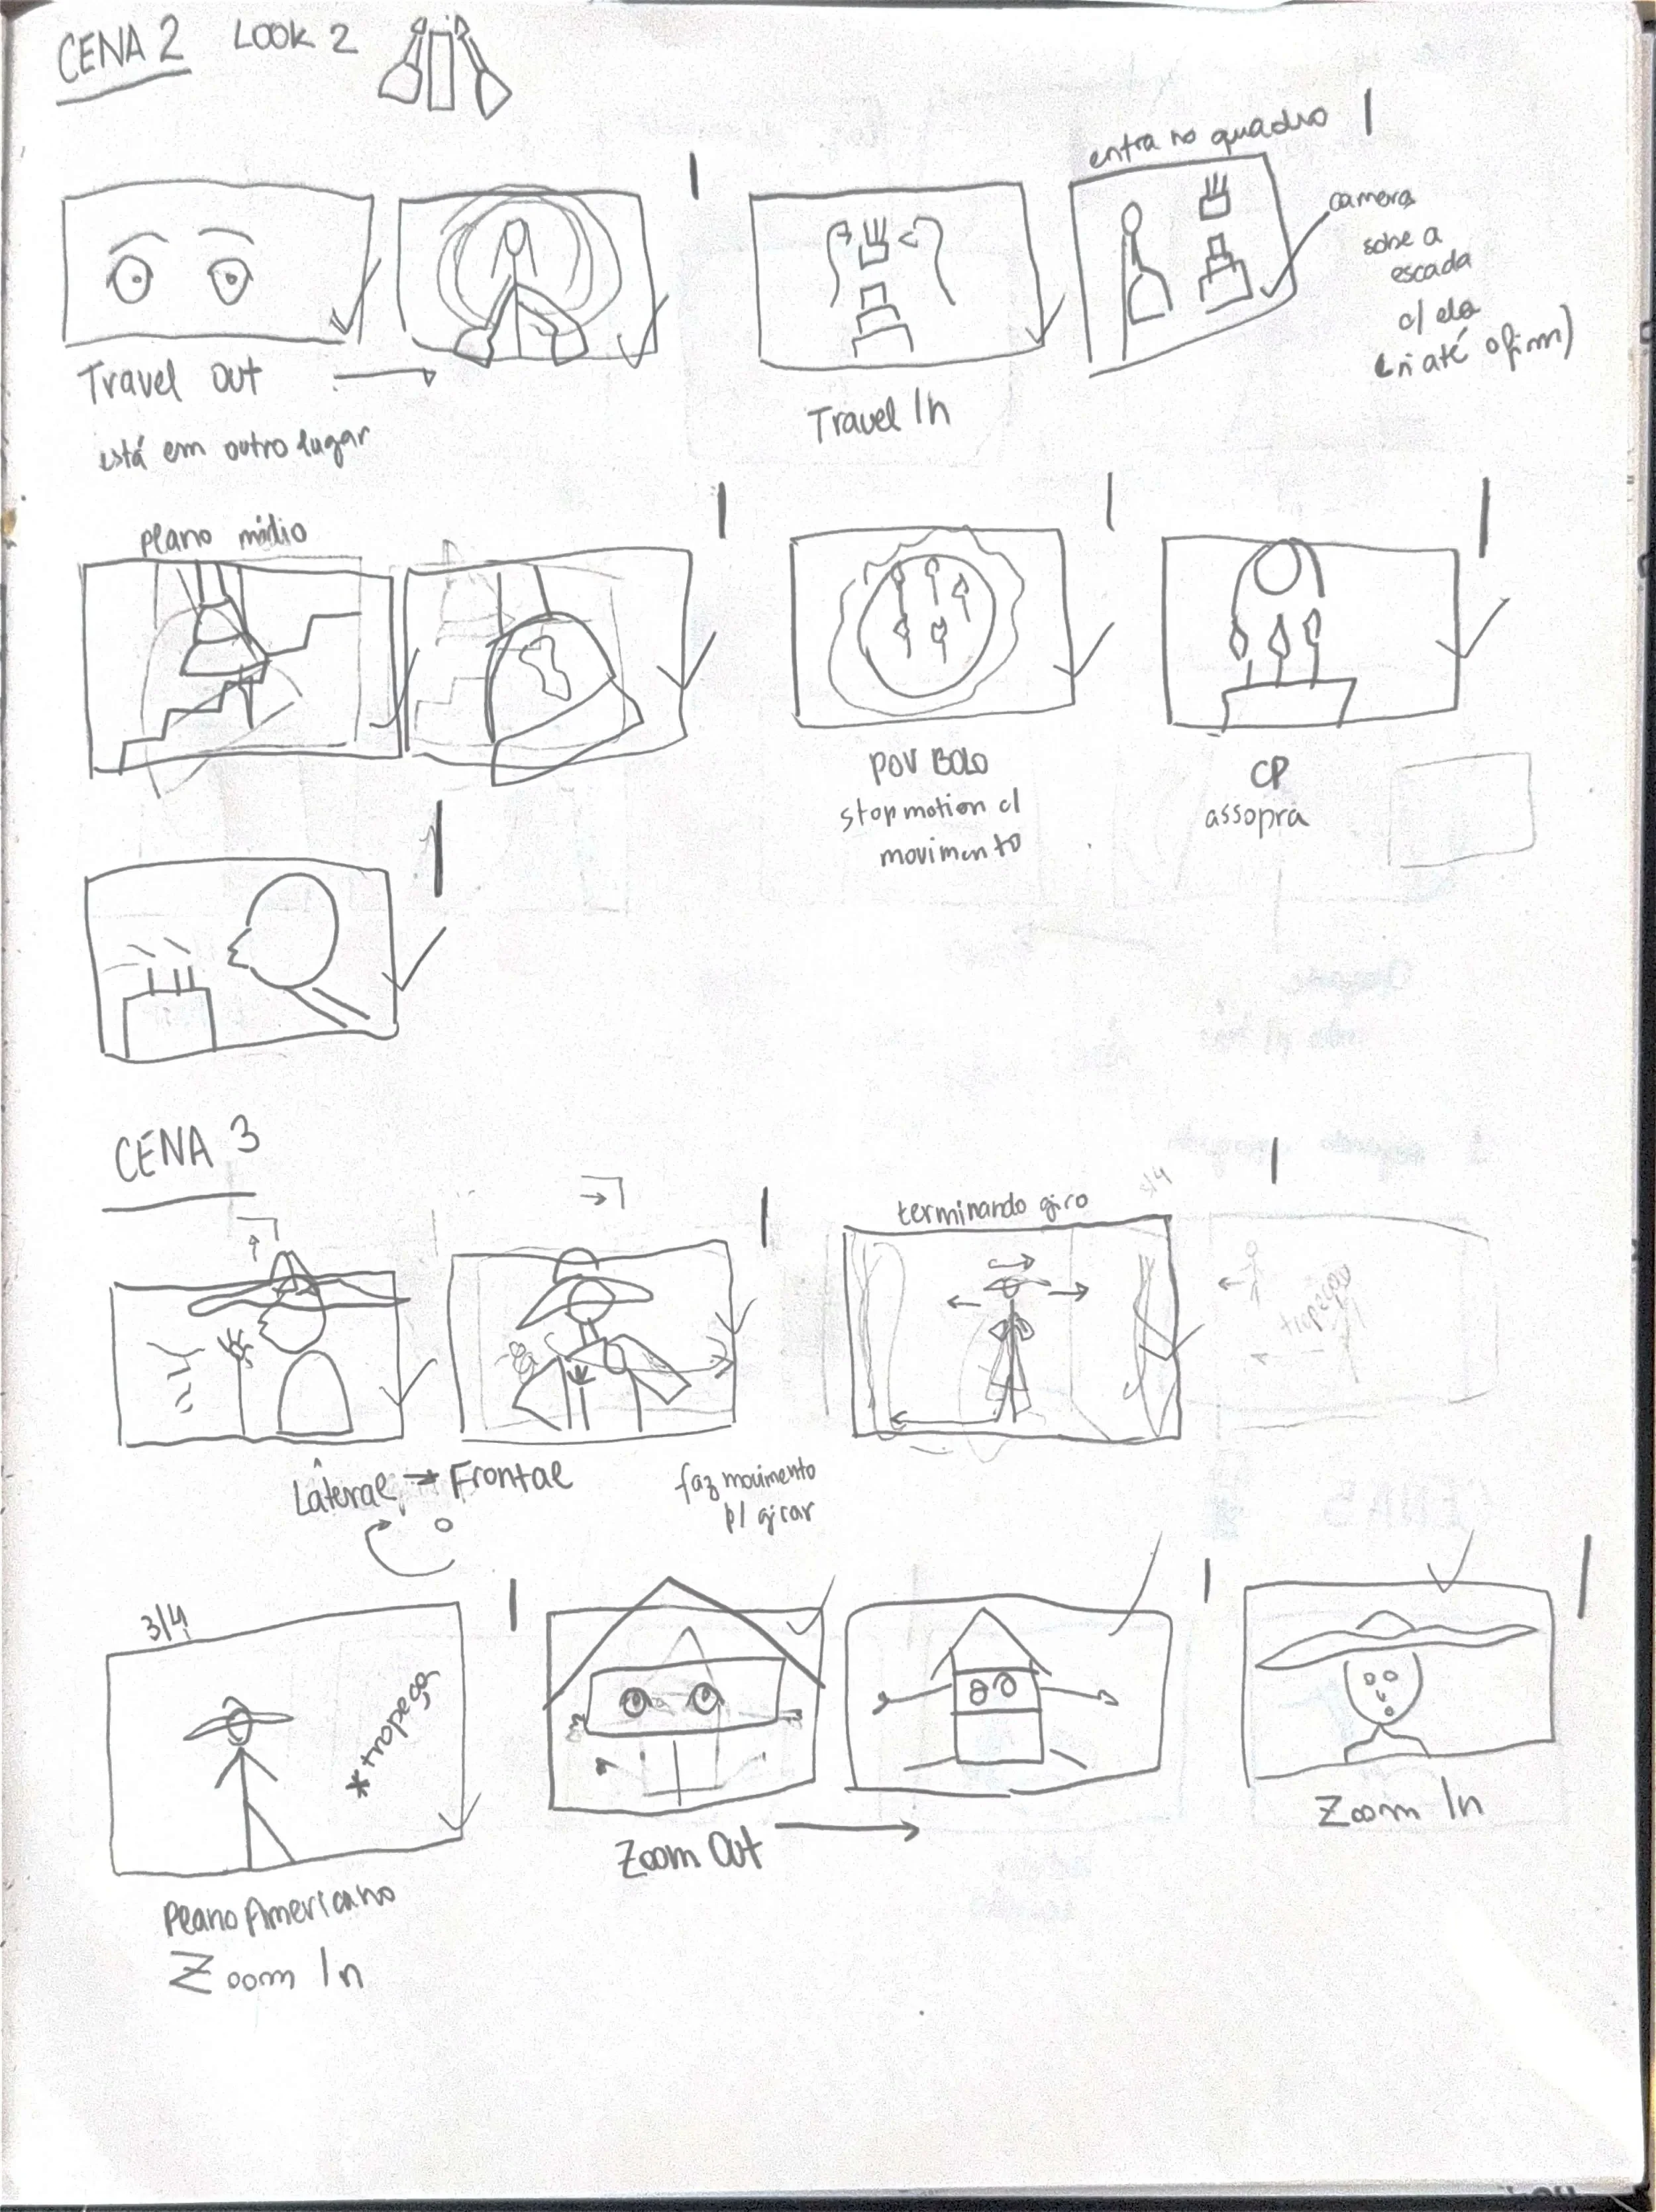 CENA 2 LOOK 2
entra no quadro
camera
sobe a
escada
c/ ela
até o fim)
Travel Out
está em outro lugar
Travel In
plano médio
POV BOLO
stopmotion c/
movimento
CP
assopra
CENA 3
terminando giro
3/4
tropeça
Lateral → Frontal
faz movimento
p/ girar
3/4
*tropeça
Zoom Out
Zoom In
Plano Americano
Zoom In